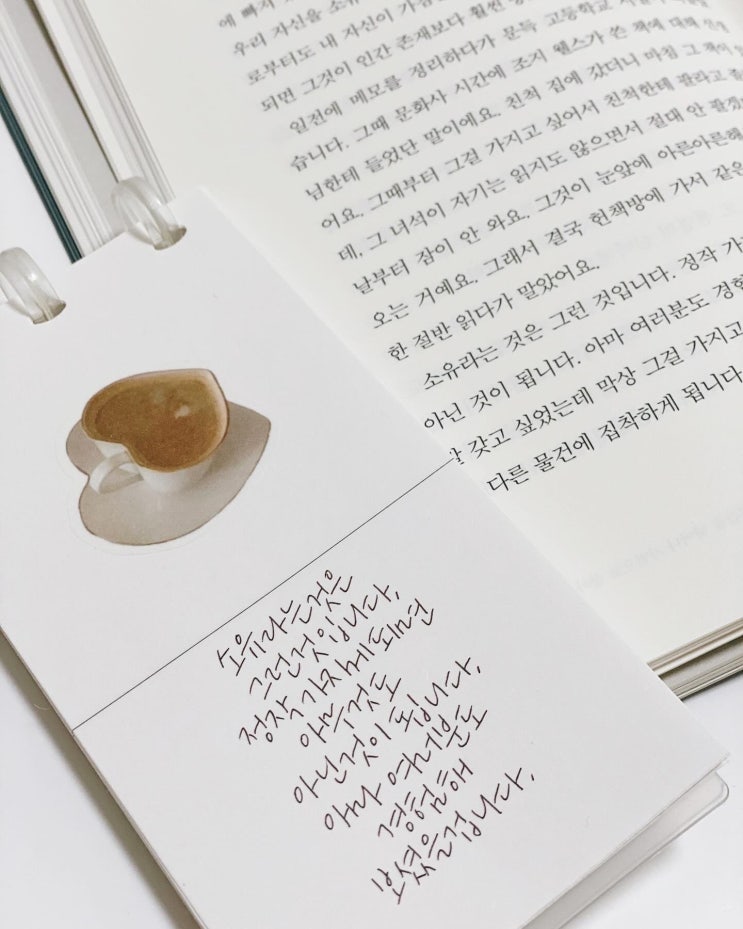 우리 자신을 소유
로부터도 내 자신이
되면 그것이 인간 존재보다 훨씬
일전에 메모를 정리하다가 문득 고등학교
습니다. 그때 문화사 시간에 조지 웰스가 쓴 책에 대해
님한테 들었단 말이에요. 친척 집에 갔더니 마침 그 책이
어요. 그때부터 그걸 가지고 싶어서 친척한테 팔라고
데, 그 녀석이 자기는 읽지도 않으면서 절대 안
날부터 잠이 안 와요. 그것이 눈앞에 아른아른해
오는 거예요. 그래서 결국 헌책방에 가서 같은
한 절반 읽다가 말았어요.
소유라는 것은 그런 것입니다. 정작
아닌 것이 됩니다. 아마 여러분도
갖고 싶었는데 막상 그걸 가지고
다른 물건에 집착하게 됩니다
소유라는것은
그런것입니다.
정작 가지게 되면
아무것도
아닌것이 됩니다.
아마 여러분도
경험해
보셨을겁니다.